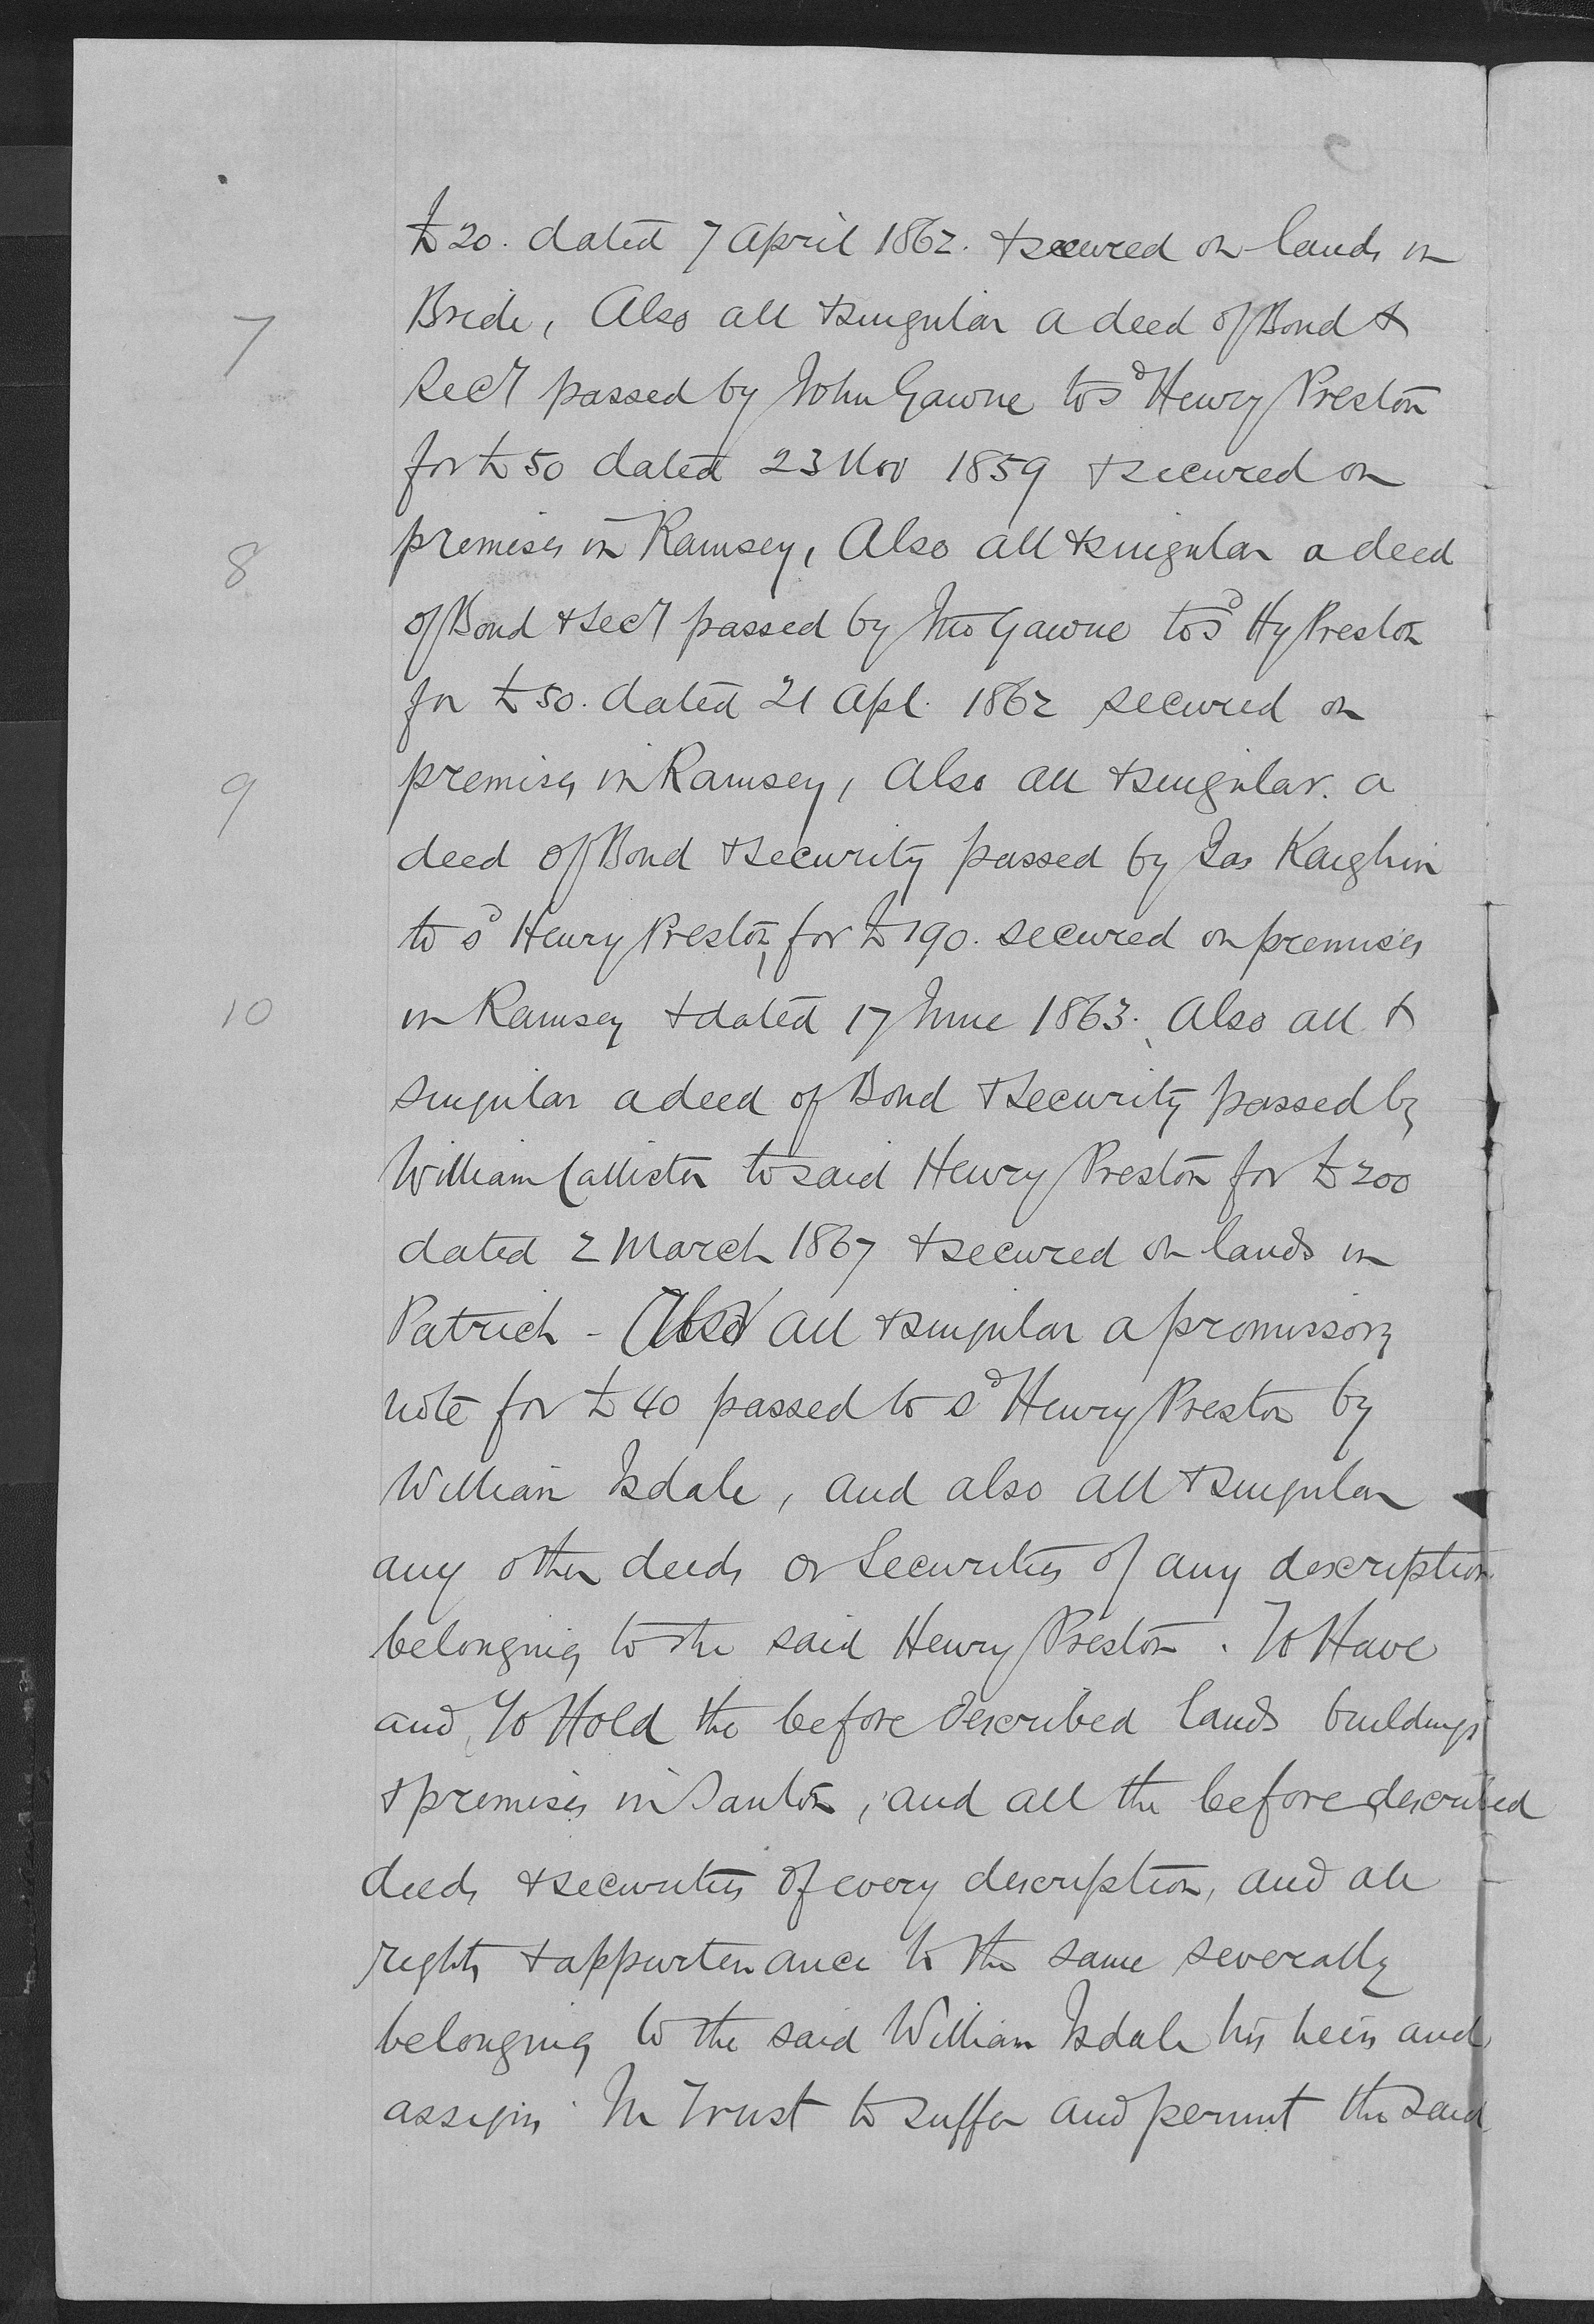 £20. dated 7 April 1862. & secured on lands in
7 Bride, Also all & singular a deed of Bond &
Secy passed by John Gawne to sd Henry Preston
for £50 dated 23 Nov 1859 & secured on
8 premises in Ramsey, Also all & singular a deed
of Bond & Secy passed by Jno Gawne to sd Hy Preston
for £50. dated 21 Apl. 1862 secured on
9 premises in Ramsey, Also all & singular. a
deed of Bond & security passed by Jas Kaighin
to sd Henry Preston, for £190. secured on premises
10 in Ramsey & dated 17 June 1863. Also all &
singular a deed of Bond & Security passed by
William Callister to said Henry Preston for £200
dated 2 March 1867 & secured on lands in
Patrick - Also all & singular a promissory
note for £40 passed to sd Henry Preston by
William Isdale, and also all & singular
any other deeds or Securities of any description
belonging to the said Henry Preston. To Have
and To Hold the before described lands buildings
& premises in Santon, and all the before described
deeds & securities of every description, and all
rights & appurtenance to the same severally
belonging to the said William Isdale his heirs and
assigns In Trust to suffer and permit the said